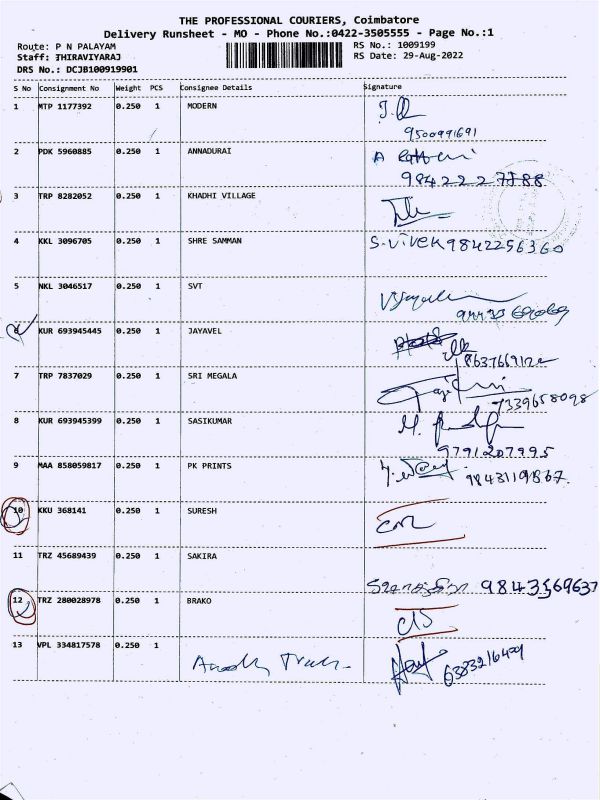 THE PROFESSIONAL COURIERS, Coimbatore
Delivery Runsheet - MO - Phone No.:0422-3505555 - Page No.:1
Route: P N PALAYAM
RS No.: 1009199
Staff: THIRAVIYARAJ
RS Date: 29-Aug-2022
DRS No.: DCJB100919901
S No Consignment No Weight PCS Consignee Details Signature
1 MTP 1177392 0.250 1 MODERN
9500991691
2 PDK 5960885 0.250 1 ANNADURAI
984222 7788
3 TRP 8282052 0.250 1 KHADHI VILLAGE
4 KKL 3096705 0.250 1 SHRE SAMMAN S.Vivek 9842256360
5 NKL 3046517 0.250 1 SVT
6 KUR 693945445 0.250 1 JAYAVEL
7 TRP 7837029 0.250 1 SRI MEGALA
7339658098
8 KUR 693945399 0.250 1 SASIKUMAR
9791207995
9 MAA 858059817 0.250 1 PK PRINTS
9843119867.
10 KKU 368141 0.250 1 SURESH
11 TRZ 45689439 0.250 1 SAKIRA
9843569637
12 TRZ 280028978 0.250 1 BRAKO
13 VPL 334817578 0.250 1
6383216409